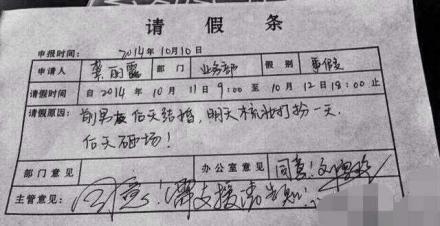 请假条
申报时间： 2014年10月10日
申请人 龚丽露 部门 业务部 假别 事假
请假时间 自 2014年 10月 11日 9:00 至 10月 12日 18:00 止
请假原因： 前男友后天结婚，明天梳妆打扮一天，
后天砸场！
部门意见 办公室意见 同意！
主管意见： 同意！需支援请告知！